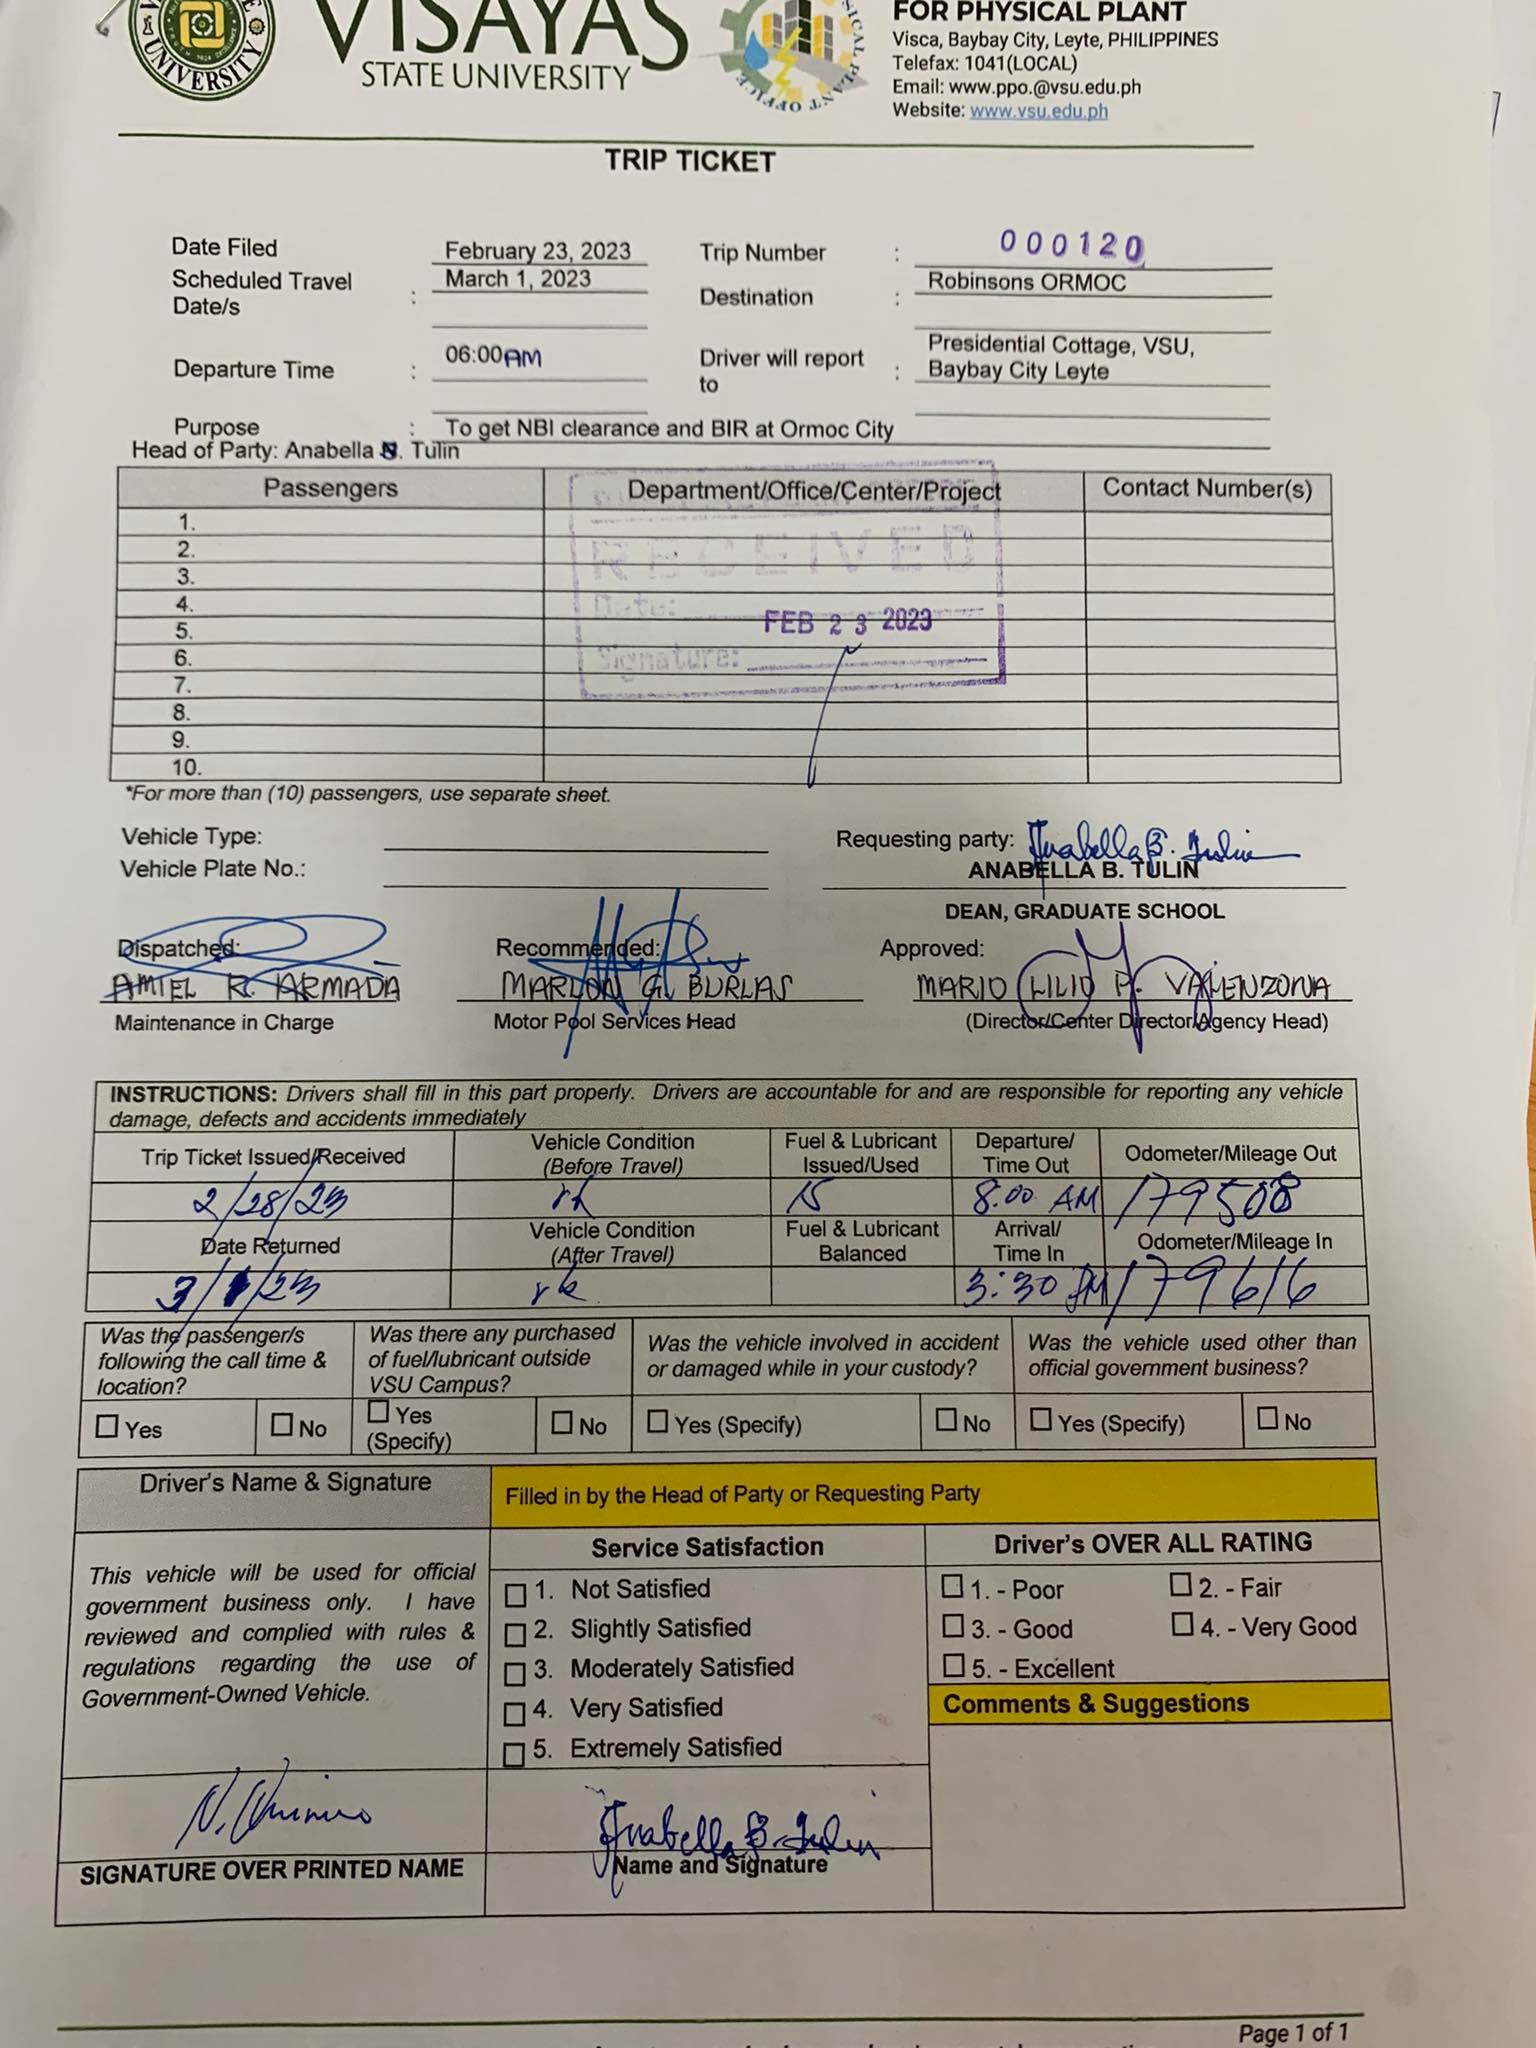 VISAYAS
STATE UNIVERSITY
UNIVERSITY
FOR PHYSICAL PLANT
Visca, Baybay City, Leyte, PHILIPPINES
Telefax: 1041(LOCAL)
Email: www.ppo.@vsu.edu.ph
Website: www.vsu.edu.ph
TRIP TICKET
Date Filed February 23, 2023 Trip Number : 000120
Scheduled Travel Date/s : March 1, 2023 Destination : Robinsons ORMOC
Departure Time : 06:00AM Driver will report to : Presidential Cottage, VSU,
Baybay City Leyte
Purpose : To get NBI clearance and BIR at Ormoc City
Head of Party: Anabella . Tulin
Passengers Department/Office/Center/Project Contact Number(s)
1.
2.
3.
4.
5.
6.
7.
8.
9.
10.
RECEIVED
Date: FEB 23 2023
Signature:
*For more than (10) passengers, use separate sheet.
Vehicle Type: Requesting party: Anabella B. Tulin
Vehicle Plate No.: ANABELLA B. TULIN
DEAN, GRADUATE SCHOOL
Dispatched: Recommended: Approved:
AMIEL R. ARMADA MARLON G. BURLAS MARIO LILIO P. VALENZONA
Maintenance in Charge Motor Pool Services Head (Director/Center Director/Agency Head)
INSTRUCTIONS: Drivers shall fill in this part properly. Drivers are accountable for and are responsible for reporting any vehicle
damage, defects and accidents immediately
Trip Ticket Issued/Received Vehicle Condition (Before Travel) Fuel & Lubricant Issued/Used Departure/ Time Out Odometer/Mileage Out
2/28/23 15 8:00 AM 179508
Date Returned Vehicle Condition (After Travel) Fuel & Lubricant Balanced Arrival/ Time In Odometer/Mileage In
3/1/23 3:30 PM 179616
Was the passenger/s following the call time & location? Was there any purchased of fuel/lubricant outside VSU Campus? Was the vehicle involved in accident or damaged while in your custody? Was the vehicle used other than official government business?
Yes No Yes (Specify) No Yes (Specify) No Yes (Specify) No
Driver's Name & Signature Filled in by the Head of Party or Requesting Party
Service Satisfaction Driver's OVER ALL RATING
This vehicle will be used for official
government business only. I have
reviewed and complied with rules &
regulations regarding the use of
Government-Owned Vehicle.
1. Not Satisfied
2. Slightly Satisfied
3. Moderately Satisfied
4. Very Satisfied
5. Extremely Satisfied
1. - Poor 2. - Fair
3. - Good 4. - Very Good
5. - Excellent
Comments & Suggestions
Anabella B. Tulin
SIGNATURE OVER PRINTED NAME Name and Signature
Page 1 of 1